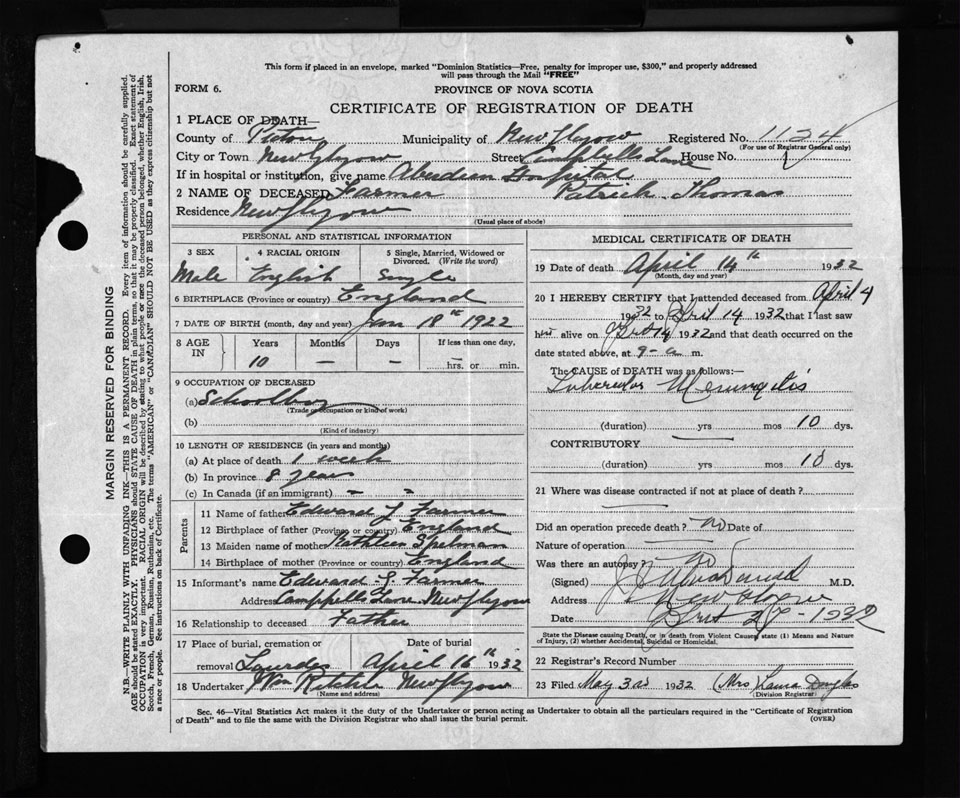 This form if placed in an envelope, marked "Dominion Statistics—Free, penalty for improper use, $300," and properly addressed
will pass through the Mail "FREE"
FORM 6.
PROVINCE OF NOVA SCOTIA
CERTIFICATE OF REGISTRATION OF DEATH
1 PLACE OF DEATH—
County of Pictou Municipality of New Glasgow Registered No. 1124
(For use of Registrar General only)
City or Town New Glasgow Street Campbells Lane House No.
If in hospital or institution, give name Aberdeen Hospital
2 NAME OF DECEASED Farmer Patrick Thomas
Residence New Glasgow
(Usual place of abode)
PERSONAL AND STATISTICAL INFORMATION
3 SEX 4 RACIAL ORIGIN 5 Single, Married, Widowed or Divorced. (Write the word)
Male English Single
6 BIRTHPLACE (Province or country) England
7 DATE OF BIRTH (month, day and year) Jan 18th 1922
8 AGE IN Years Months Days If less than one day,
10 — — hrs. or min.
9 OCCUPATION OF DECEASED
(a) Schoolboy
(Trade or occupation or kind of work)
(b)
(Kind of industry)
10 LENGTH OF RESIDENCE (in years and months)
(a) At place of death 1 week
(b) In province 8 years
(c) In Canada (if an immigrant) " "
Parents
11 Name of father Edward J. Farmer
12 Birthplace of father (Province or country) England
13 Maiden name of mother Kathleen Spelman
14 Birthplace of mother (Province or country) England
15 Informant's name Edward J. Farmer
Address Campbells Lane New Glasgow
16 Relationship to deceased Father
17 Place of burial, cremation or Date of burial
removal Lourdes April 16th 1932
18 Undertaker Wm Ritchie New Glasgow
Name and address
MEDICAL CERTIFICATE OF DEATH
19 Date of death April 14th 1932
(Month, day and year)
20 I HEREBY CERTIFY that I attended deceased from April 4
1932 to April 14 1932 that I last saw
him alive on April 14 1932 and that death occurred on
date stated above, at 9-a m.
The CAUSE OF DEATH was as follows:—
Tubercular Meningitis
(duration) yrs mos 10 dys.
CONTRIBUTORY
(duration) yrs mos 10 dys.
21 Where was disease contracted if not at place of death?
Did an operation precede death? no Date of
Nature of operation
Was there an autopsy? no
(Signed) M.D.
Address New Glasgow
Date April 1932
State the Disease causing Death, or in death from Violent Causes, state (1) Means and Nature
of Injury, (2) whether Accidental, Suicidal or Homicidal.
22 Registrar's Record Number
23 Filed May 3rd 1932 (Mrs) Laura Douglas
(Division Registrar)
Sec. 46—Vital Statistics Act makes it the duty of the Undertaker or person acting as Undertaker to obtain all the particulars required in the "Certificate of Registration
of Death" and to file the same with the Division Registrar who shall issue the burial permit.
(OVER)
MARGIN RESERVED FOR BINDING
N.B.—WRITE PLAINLY WITH UNFADING INK—THIS IS A PERMANENT RECORD. Every item of information should be carefully supplied.
AGE should be stated EXACTLY. PHYSICIANS should STATE CAUSE OF DEATH in plain terms, so that it may be properly classified. Exact statement of
OCCUPATION is very important. RACIAL ORIGIN will be described by stating to what people or race the deceased person belonged, whether English, Irish,
Scotch, French, German, Russian, Ruthenian, etc. The terms "AMERICAN" or "CANADIAN" SHOULD NOT BE USED as they express citizenship but not
a race or people. See instructions on back of Certificate.